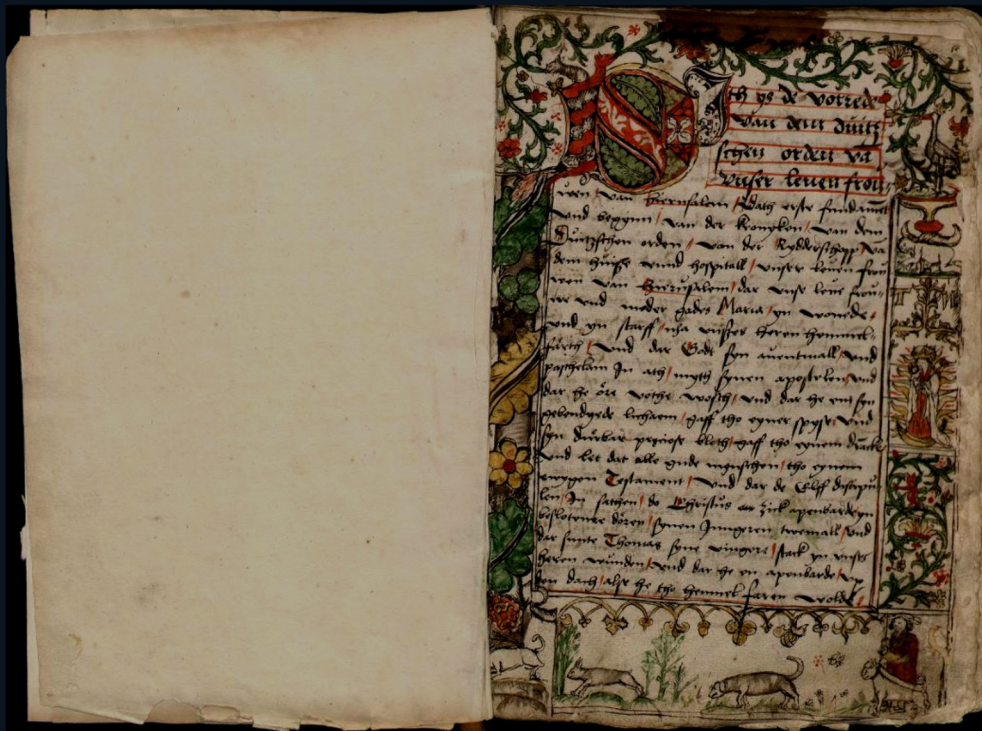 Dith ys de vorrede
van dem duitz
schen orden va
vnser leuen frou
wen van Hierusalem / Dath erste fundament
vnd begynn / van der kronyken / van dem
Duitzschen orden / von der Rydderschapp / va
dem huise vnnd hospitall / vnser leuen frou
wen van Hierusalem / dar vnse leue frou
we vnd moder gades Maria / yn wonede /
vnd yn starff / nha vnses heren hemmel
farth / vnd dar Godt syn auentmall / vnd
paschelam In ath / myth synen apostelen / vnd
dar he öre vothe wosch / vnd dar he em syn
gebenedyede licham / gaff tho eyner spyse / vnd
syn durbar preciose bloth / gaff tho eynem dranck
vnd let dat alle gude mynschen / tho eynem
ewygen Testament / vnd dar de Elff discipu
len / In sathen / do Christus en zick apenbarde yn
beslotener dören / synen Jungeren twemall / vnd
dar sunte Thomas syne vingere / stack yn vnses
heren wunden / vnd dar he en apenbarde / vp
den dach / alse he tho hemmel faren wolde /